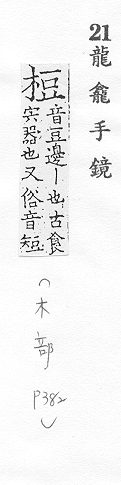 21龍龕手鏡
梪
音豆邊丨也古食
宍器也又俗音短
(木部 P382)